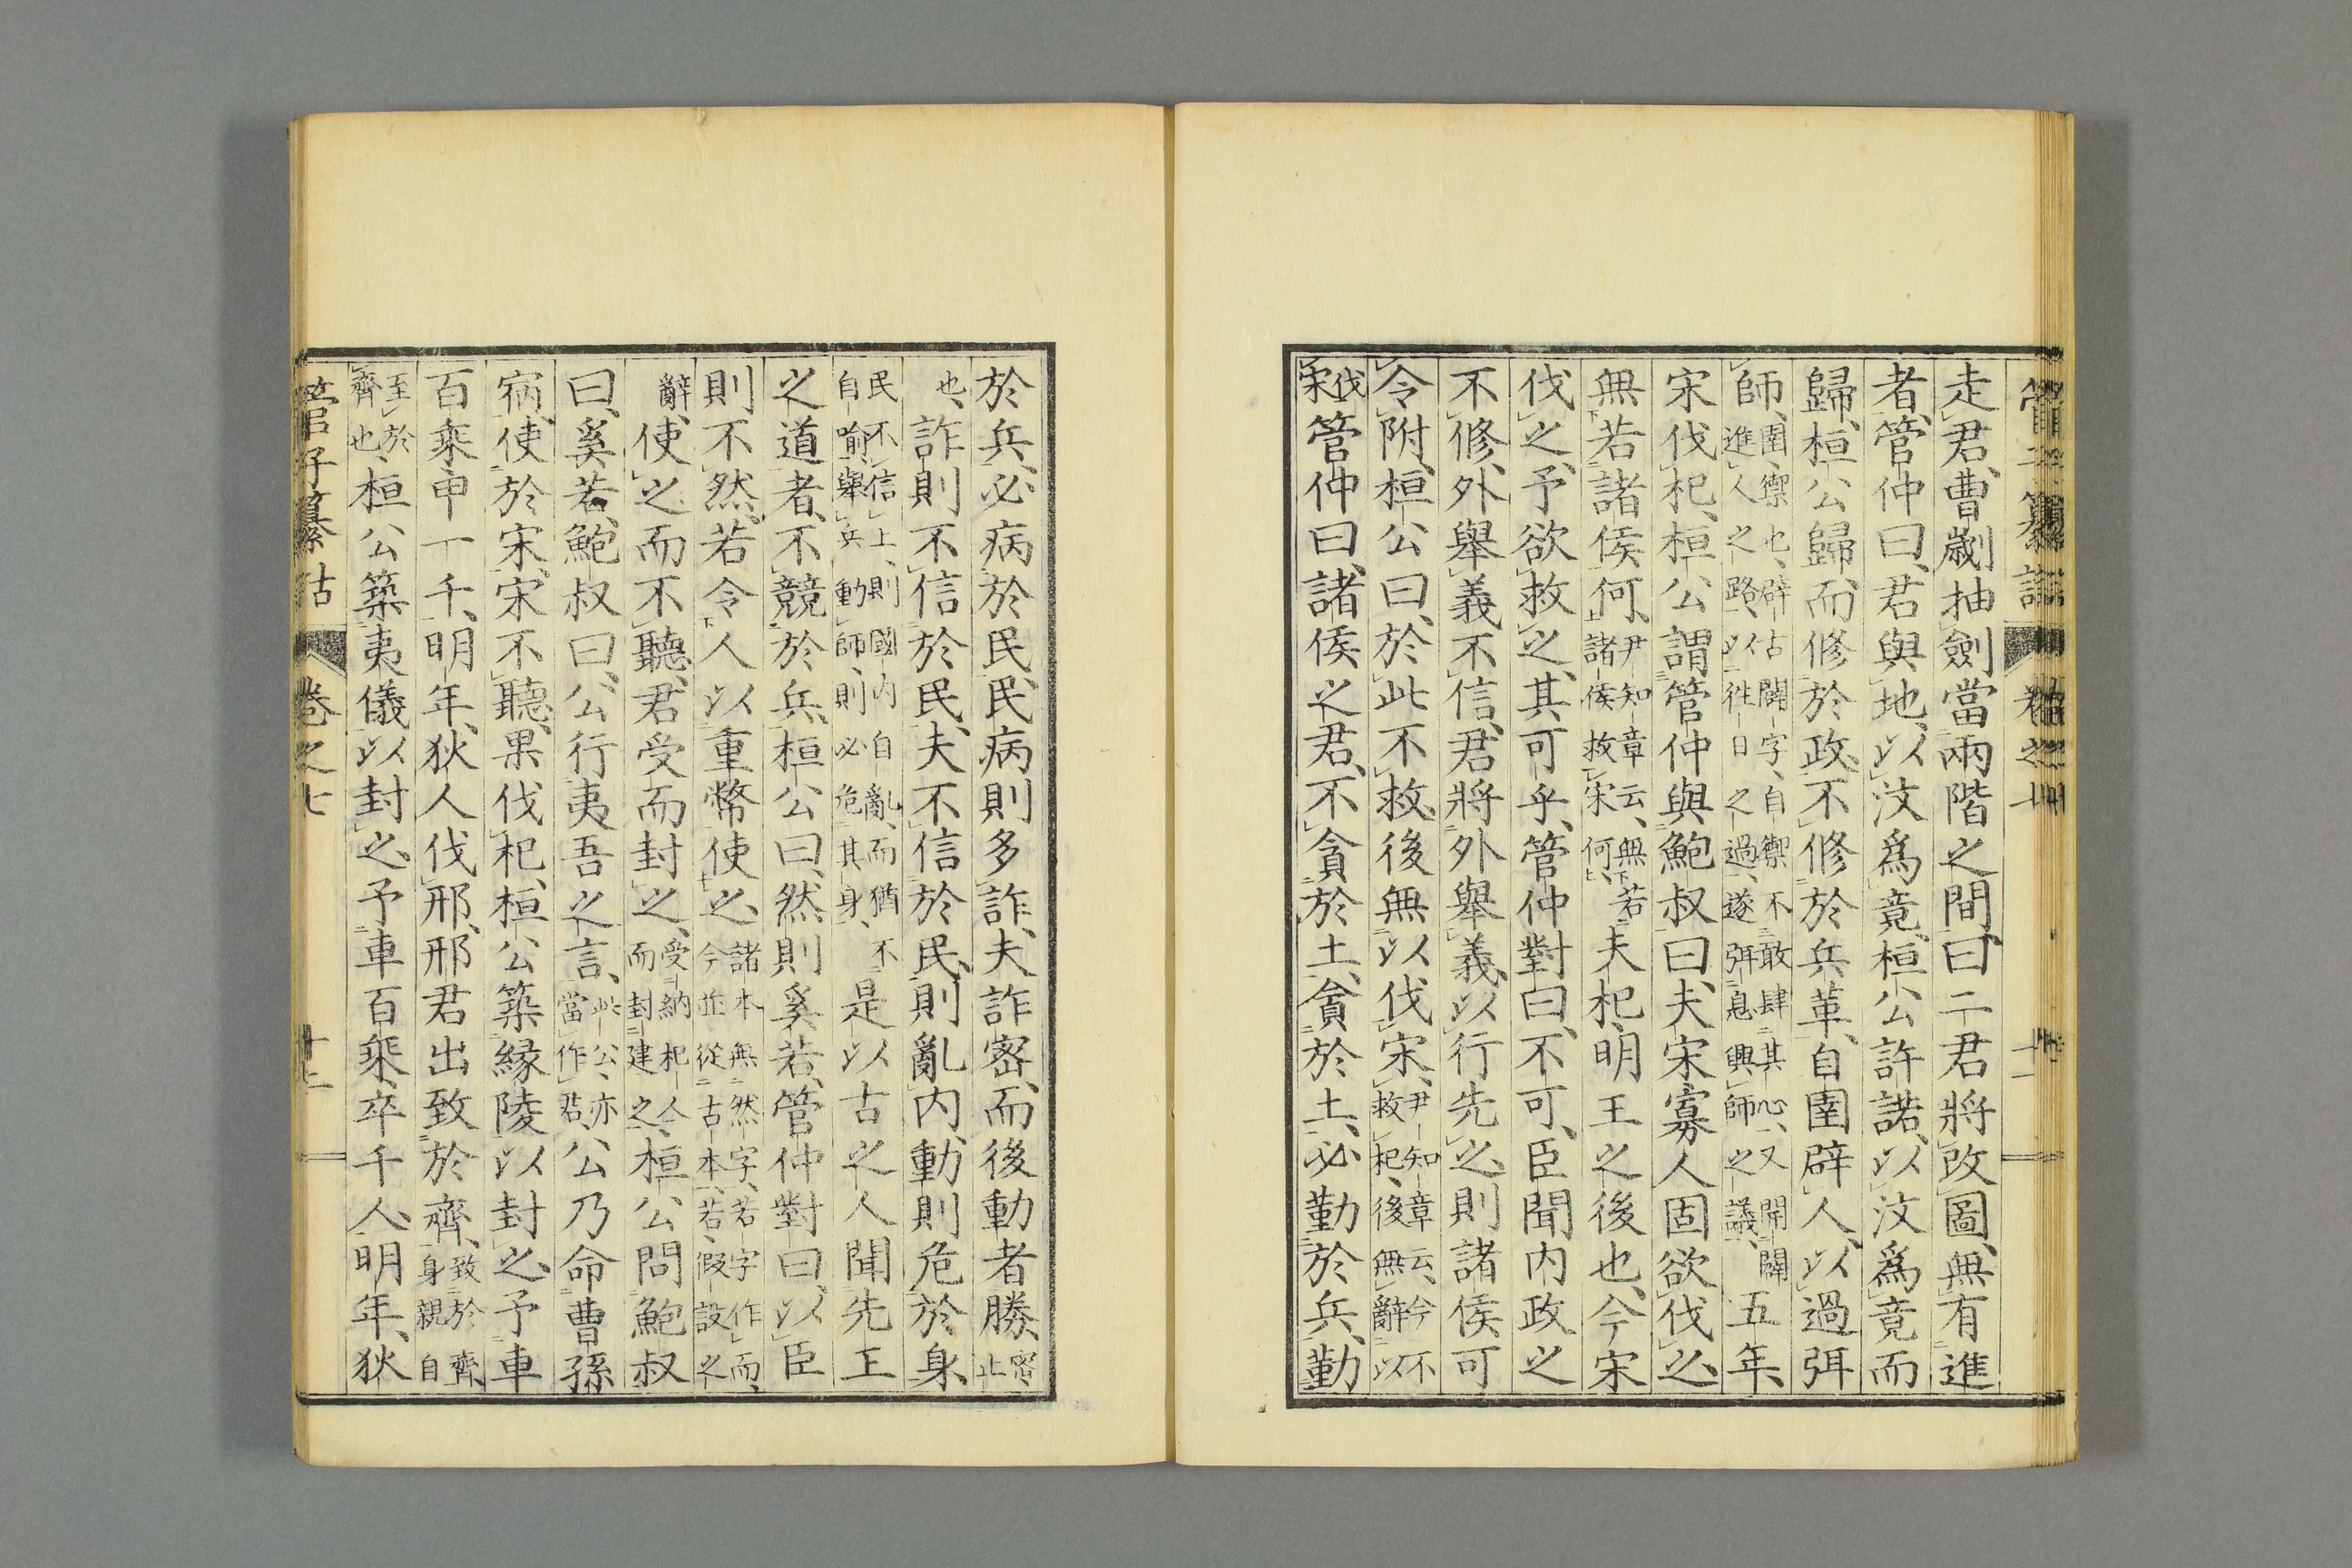 管子纂詁 卷之七
走、君、曹劌抽劍當兩階之間、曰、二君將改圖、無有進
者、管仲曰、君與地、以汶爲竟、桓公許諾、以汶爲竟而
歸、桓公歸而修於政、不修於兵革、自圉辟人、以過弭
師、圉、禦也、辟、古闢字、自禦不敢肆其心、又開闢進人之路、以往日之過、遂弭息興師之議、五年、
宋伐杞、桓公謂管仲與鮑叔曰、夫宋寡人固欲伐之、
無若諸侯何、尹知章云、無若諸侯救宋何、夫杞、明王之後也、今宋
伐之、予欲救之、其可乎、管仲對曰、不可、臣聞内政之
不修、外舉義不信、君將外舉義、以行先之、則諸侯可
令附、桓公曰、於此不救、後無以伐宋、尹知章云、今不救杞、後無辭以
伐宋管仲曰、諸侯之君、不貪於土、貪於土、必勤於兵、勤
於兵、必病於民、民病則多詐、夫詐密、而後動者勝、密、止
也、詐則不信於民、夫不信於民、則亂内、動則危於身、
民不信上、則國内自亂、而猶不自喻、舉兵動師、則必危其身、是以古之人聞先王
之道者、不競於兵、桓公曰、然則奚若、管仲對曰、以臣
則不然、若令人以重幣使之、諸本無然字、若字作而、今並從古本、若、假設之
辭、使之而不聽、君受而封之、受納杞人而封建之、桓公問鮑叔
曰、奚若、鮑叔曰、公行夷吾之言、此公、亦當作君、公乃命曹孫
宿、使於宋、宋不聽、果伐杞、桓公築緣陵以封之、予車
百乘、甲一千、明年、狄人伐邢、邢君出致於齊、致於齊、身親自
至於齊也、桓公築夷儀以封之、予車百乘、卒千人、明年、狄
管子纂詁 卷之七 十二